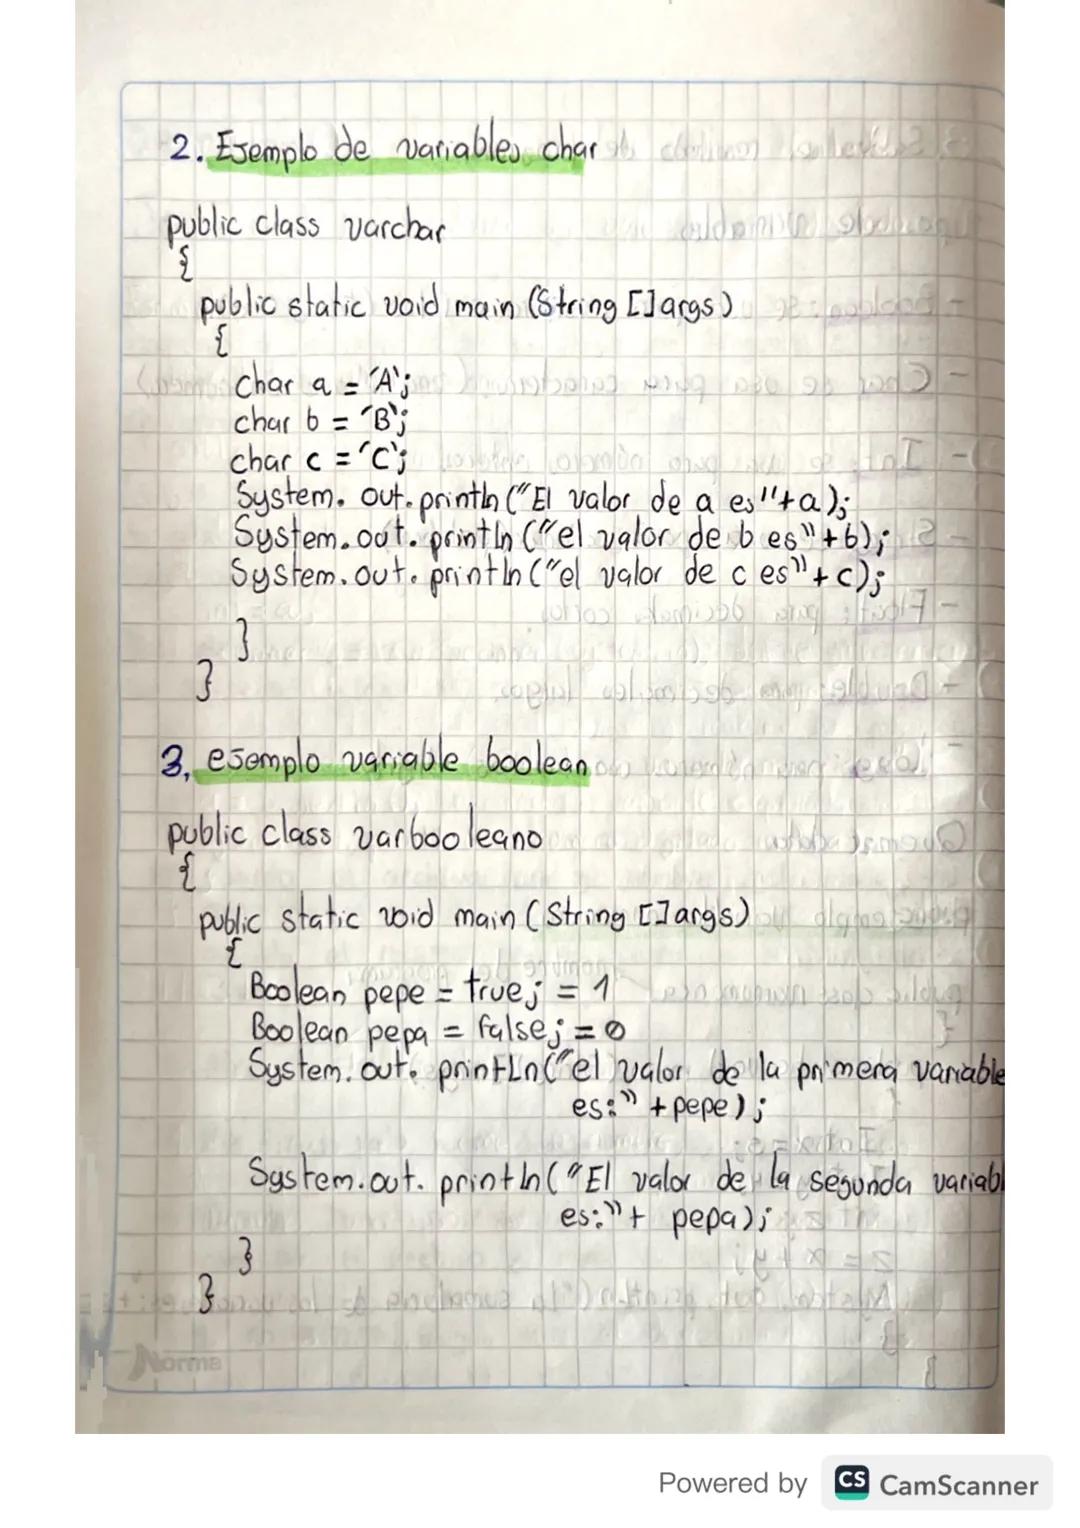 2. Ejemplo de variables char
public class varchar
{
public static void main (String []args)
{
char a = 'A';
char b = 'B';
char c = 'C';
System. out. println ("El valor de a es"+a);
System. out. println ("el valor de b es"+b);
System. out. println ("el valor de c es"+c);
}
}
3. ejemplo variable boolean
public class varbooleano
{
public static void main (String []args)
{
Boolean pepe = true; = 1
Boolean pepa = false; = 0
System. out. printLn("el valor de la primera variable
es:" +pepe);
System.out. println("El valor de la segunda variabl
es:"+ pepa);
}
}
Norma
Powered by CS CamScanner